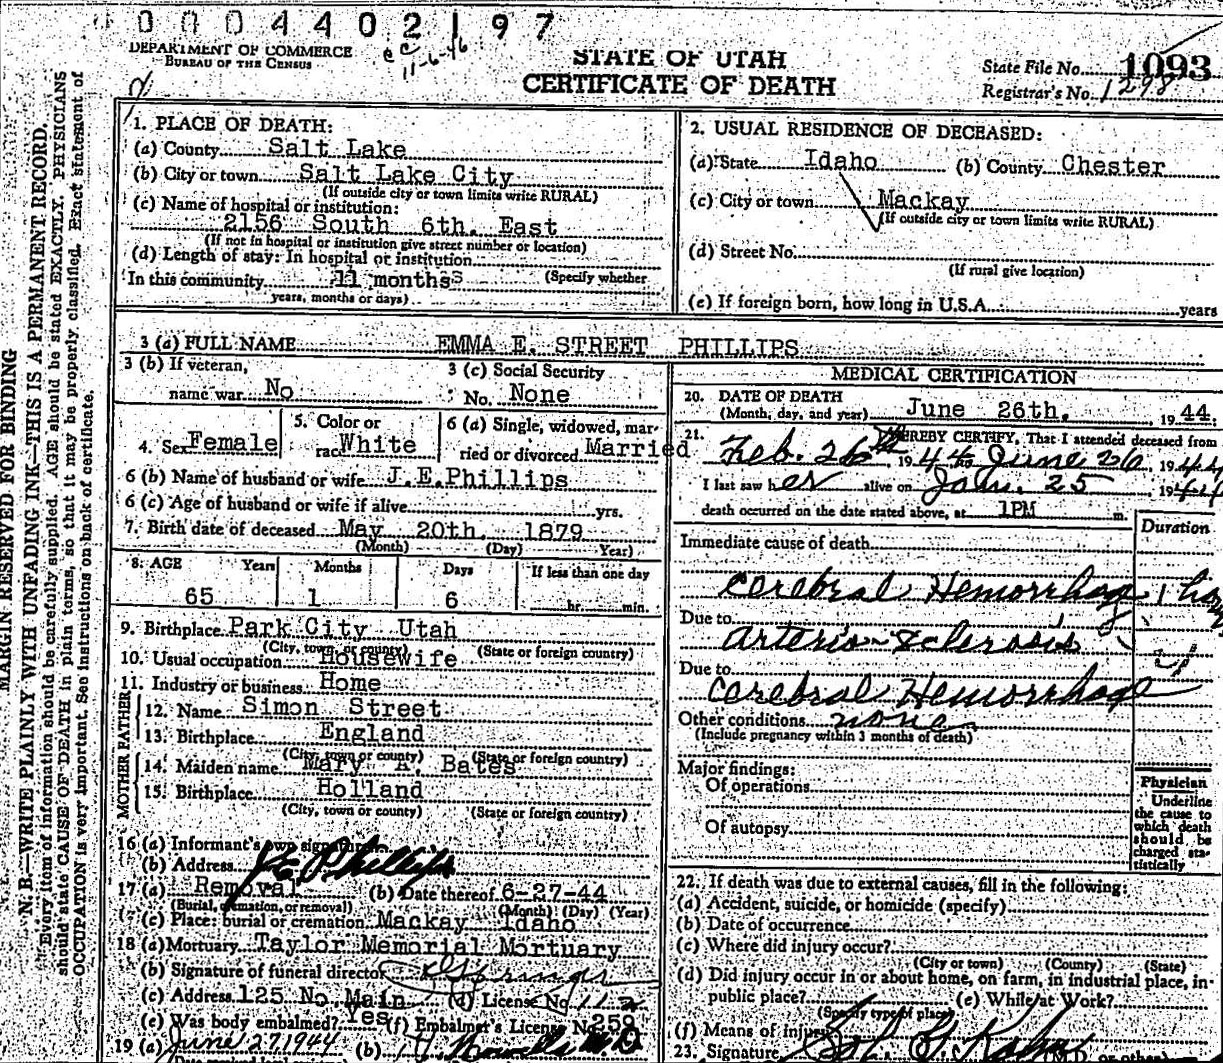 0004402197
DEPARTMENT OF COMMERCE
BUREAU OF THE CENSUS
11-6-46
STATE OF UTAH
CERTIFICATE OF DEATH
State File No. 1093
Registrar's No. 1298
MARGIN RESERVED FOR BINDING
N. B.—WRITE PLAINLY WITH UNFADING INK—THIS IS A PERMANENT RECORD.
Every item of information should be carefully supplied. AGE should be stated EXACTLY. PHYSICIANS
should state CAUSE OF DEATH in plain terms, so that it may be properly classified. Exact statement of
OCCUPATION is very important. See instructions on back of certificate.
1. PLACE OF DEATH:
(a) County Salt Lake
(b) City or town Salt Lake City
(If outside city or town limits write RURAL)
(c) Name of hospital or institution:
2156 South 6th. East
(If not in hospital or institution give street number or location)
(d) Length of stay: In hospital or institution
In this community 11 months (Specify whether
years, months or days)
2. USUAL RESIDENCE OF DECEASED:
(a) State Idaho (b) County Chester
(c) City or town Mackay
(If outside city or town limits write RURAL)
(d) Street No.
(If rural give location)
(e) If foreign born, how long in U.S.A. years
3 (a) FULL NAME EMMA E. STREET PHILLIPS
3 (b) If veteran,
name war No
3 (c) Social Security
No. None
4. Sex Female
5. Color or
race White
6 (a) Single, widowed, mar-
ried or divorced Married
6 (b) Name of husband or wife J.E.Phillips
6 (c) Age of husband or wife if alive yrs.
7. Birth date of deceased May 20th. 1879
(Month) (Day) Year)
8. AGE Years Months Days If less than one day
65 1 6 hr. min.
9. Birthplace Park City Utah
(City, town, or county) (State or foreign country)
10. Usual occupation Housewife
11. Industry or business Home
FATHER
12. Name Simon Street
13. Birthplace England
(City, town or county) (State or foreign country)
MOTHER
14. Maiden name Mary A. Bates
15. Birthplace Holland
(City, town or county) (State or foreign country)
16 (a) Informant's own signature
J E Phillips
(b) Address
17 (a) Removal (b) Date thereof 6-27-44
(Burial, cremation, or removal) (Month) (Day) (Year)
(c) Place: burial or cremation Mackay Idaho
18 (a) Mortuary Taylor Memorial Mortuary
(b) Signature of funeral director
(c) Address 125 No. Main (d) License No. 112
(e) Was body embalmed? Yes (f) Embalmer's License No. 250
19 (a) June 27, 1944 (b) M D
MEDICAL CERTIFICATION
20. DATE OF DEATH
(Month, day, and year) June 26th. 1944.
21. I HEREBY CERTIFY, That I attended deceased from
Feb. 26th 1944 to June 26 1944
I last saw her alive on Jan. 25 1944
death occurred on the date stated above, at 1PM m.
Duration
Immediate cause of death
Cerebral Hemorrhage 1
Due to
Arterio-Sclerosis
Due to
Cerebral Hemorrhage
Other conditions none
(Include pregnancy within 3 months of death)
Major findings:
Of operations
Of autopsy
Physician
Underline
the cause to
which death
should be
charged sta-
tistically
22. If death was due to external causes, fill in the following:
(a) Accident, suicide, or homicide (specify)
(b) Date of occurrence
(c) Where did injury occur?
(City or town) (County) (State)
(d) Did injury occur in or about home, on farm, in industrial place, in
public place? (e) While at Work?
(Specify type of place)
(f) Means of injury
23. Signature Sol G. Kahn